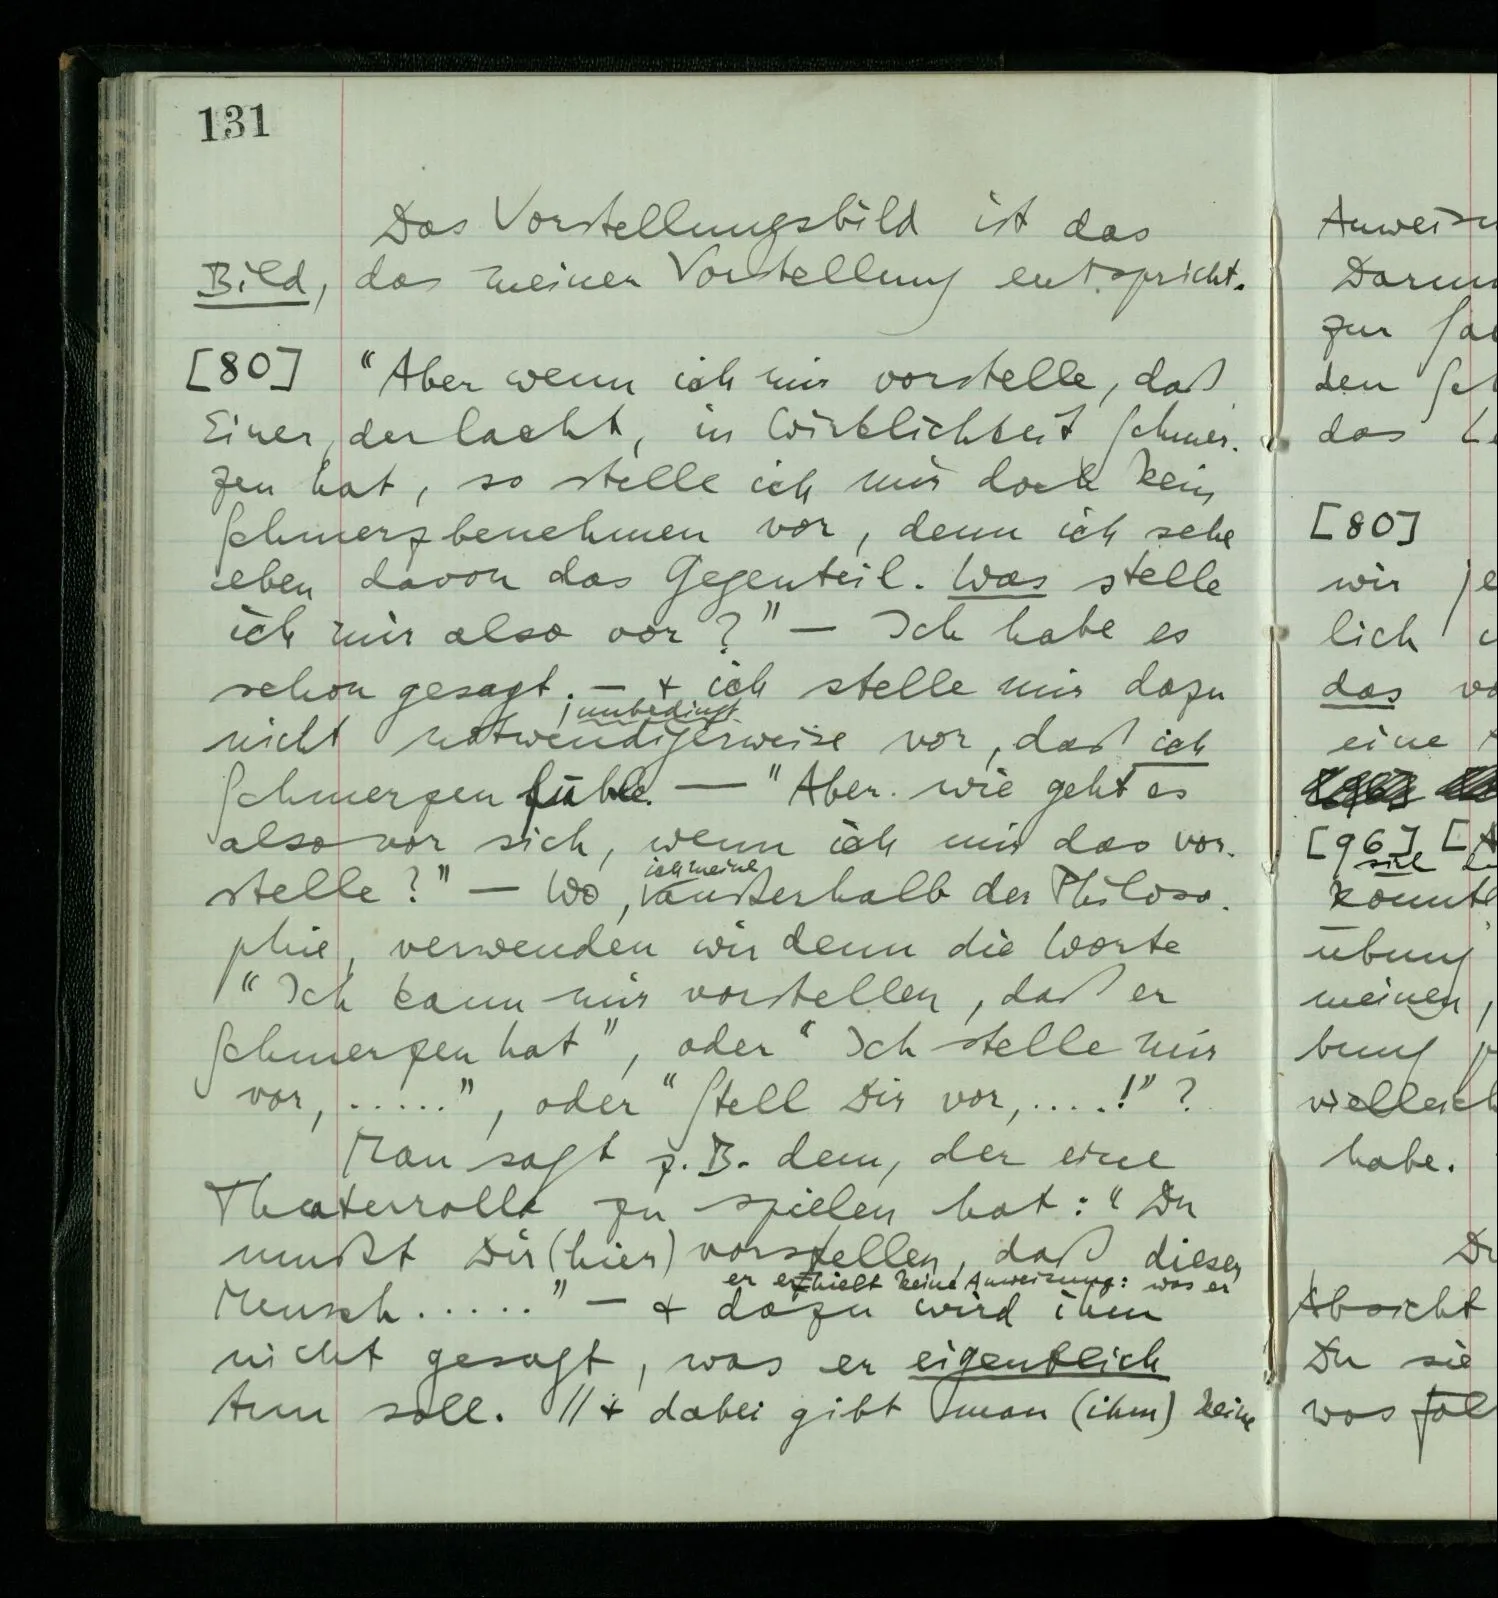 131
Das Vorstellungsbild ist das
Bild, das meiner Vorstellung entspricht.
[80] "Aber wenn ich mir vorstelle, daß
Einer, der lacht, in Wirklichkeit Schmer-
zen hat, so stelle ich mir doch kein
Schmerzbenehmen vor, denn ich sehe
eben davon das Gegenteil. Was stelle
ich mir also vor?" — Ich habe es
schon gesagt. — + ich stelle mir dazu
unbedingt
nicht notwendigerweise vor, daß ich
Schmerzen fühle. — "Aber wie geht es
also vor sich, wenn ich mir das vor-
ich meine
stelle?" — Wo, außerhalb der Philoso-
phie, verwenden wir denn die Worte
"Ich kann mir vorstellen, daß er
Schmerzen hat", oder "Ich stelle mir
vor, .....", oder "Stell Dir vor, ....!"?
Man sagt z.B. dem, der eine
Theaterrolle zu spielen hat: "Du
mußt Dir (hier) vorstellen, daß dieser
er erhielt keine Anweisung: was er
Mensch ......" — + dazu wird ihm
nicht gesagt, was er eigentlich
tun soll. // + dabei gibt man (ihm) keine
zur
den
das
[80]
wir
lich
das
eine
[96]
könnte
übung
meinen,
bung
habe.
Absicht
Du sie
was